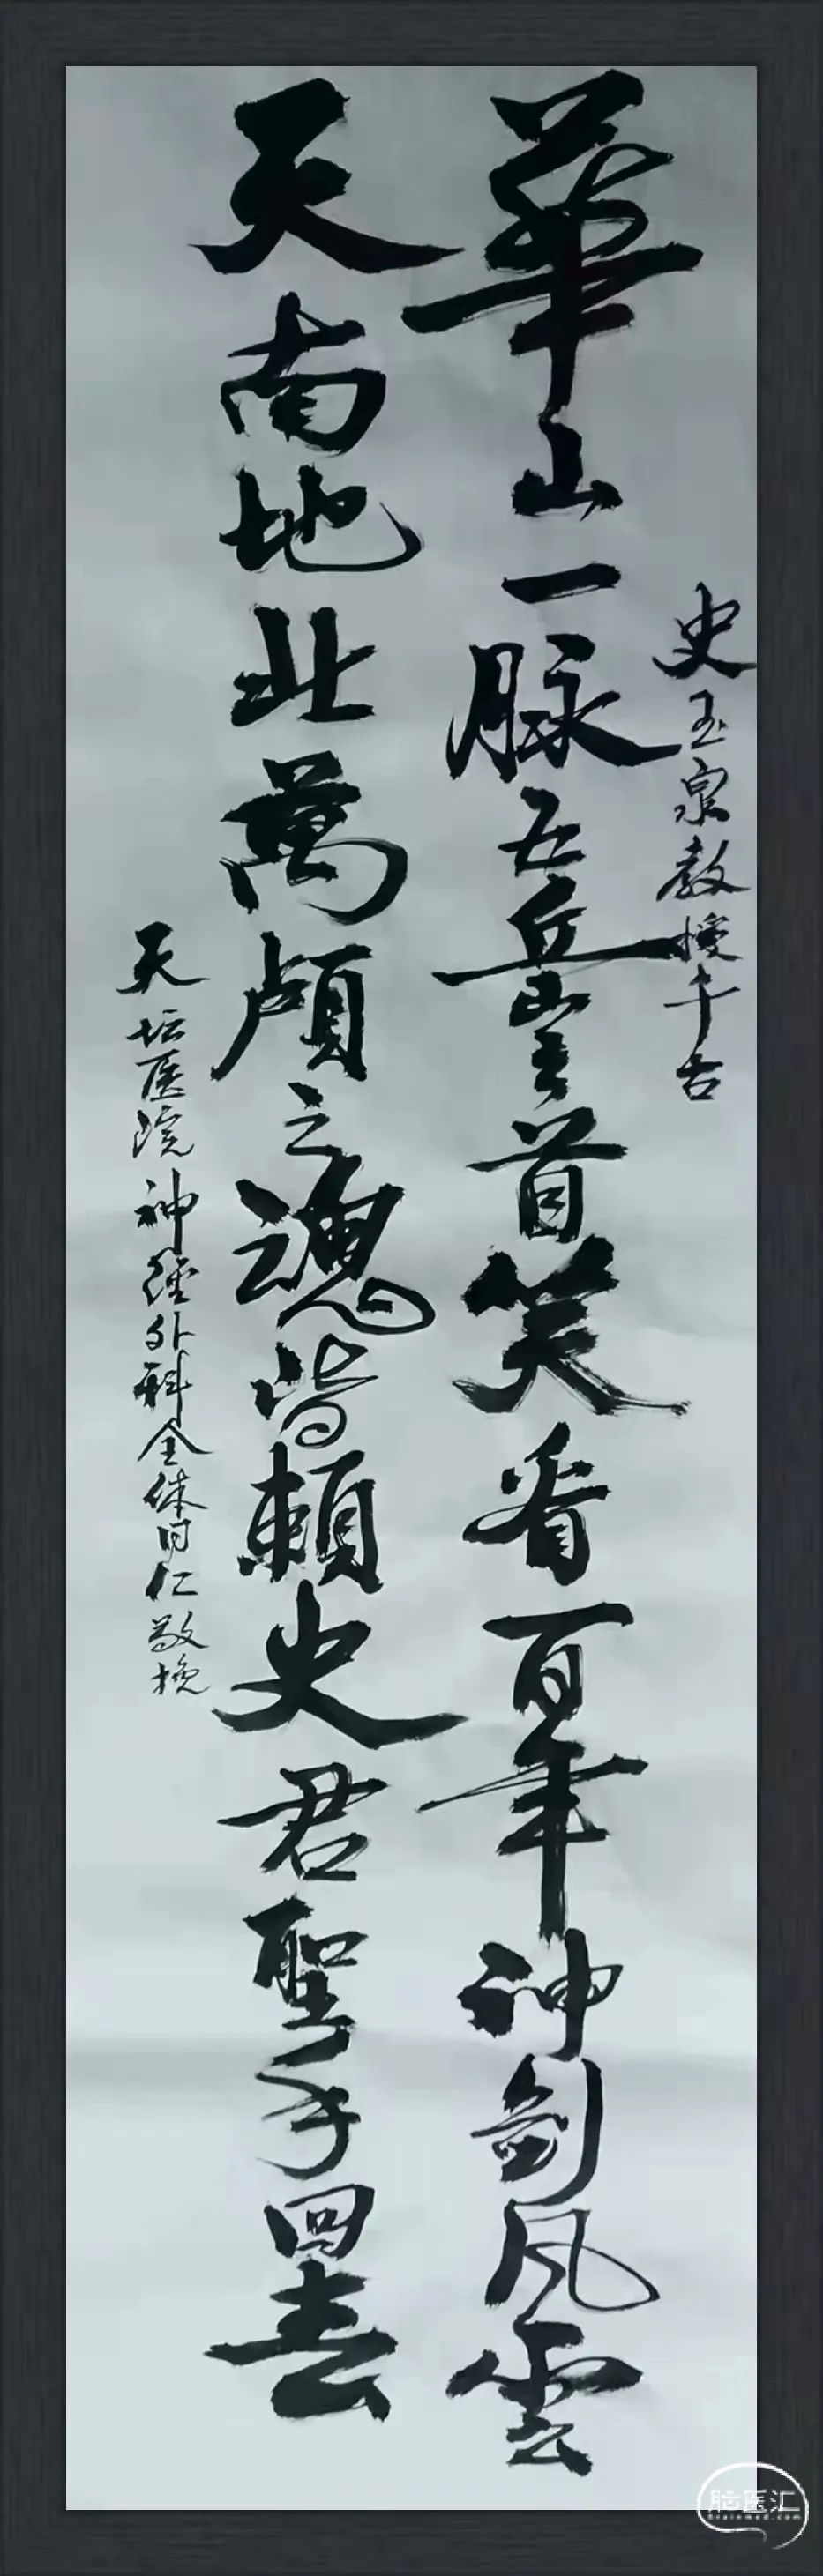 史玉泉教授千古
華山一脉五岳之首笑看百年神劍风雲
天南地北萬颅之魂皆賴史君聖手回春
天坛医院神经外科全体同仁敬挽
脑医汇
Brainmed.com